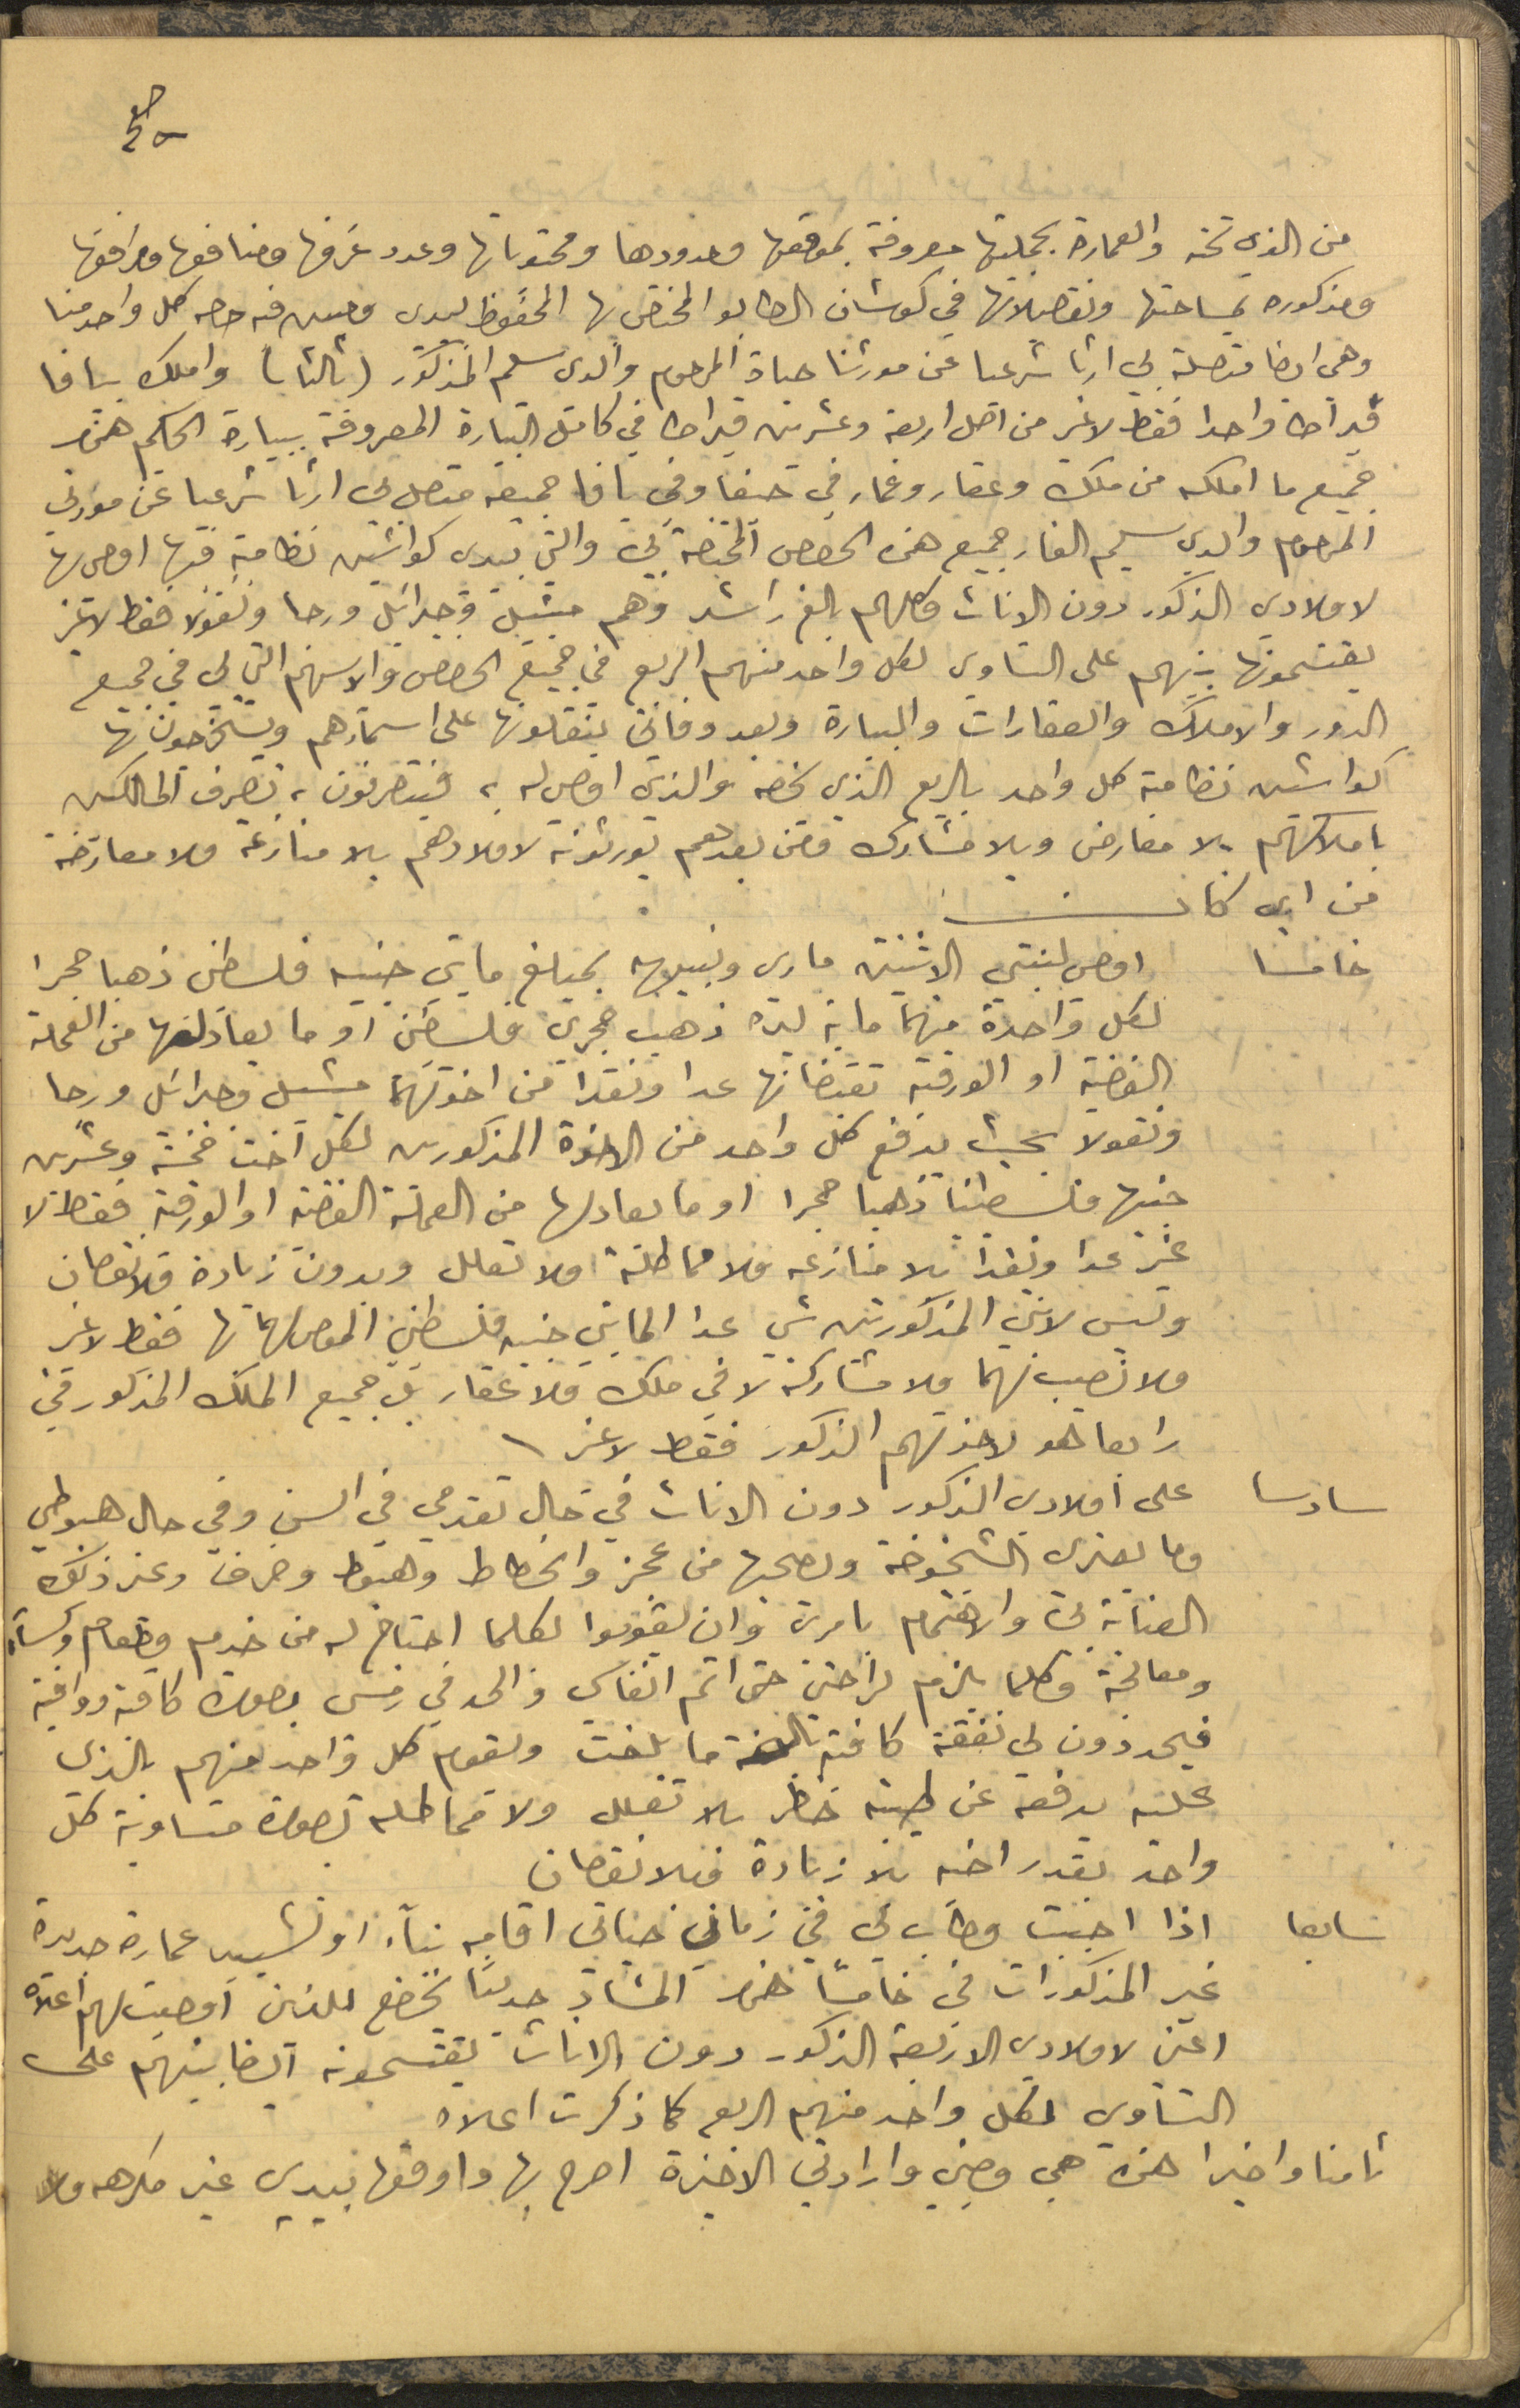 من الذي تحته والعمارة بجملتها معروفة بموقعها وحدودها ومحتوياتها وعدد غرفها ومنافعها ومرافقها
ومذكوره بمساحتها وتفصيلاتها في كوشان الطابو المختص بها المحفوظ بيدي ومبين فيه حصه كل واحد منا
وهي ايضا متصلة لي ارثا شرعيا عن مورثنا حياة المرحوم والدي سليم المذكور (ثالثا) واملك بيافا
قيراطا واحدا فقط لاغير من اصل اربعة وعشرين قيراطا في كامل البيارة المعروفة ببيارة الحكيم هذه
جميع ما املكه من ملك وعقار وعمار في حيفا وفي يافا جميعه متصل لي ارثا شرعيا عن مورثي
المرحوم والدي سليم الفار جميع هذه الحصص المختصة بي والتي بيدي كواشين نظامية فيها اوصي بها
لاولادي الذكور دون الاناث وكلهم بالغ راشد وهم ميشيل وجبرائيل ورجا ونقولا فقط لاغير
يقتسمونها بينهم على التساوي لكل واحد منهم الربع في جميع الحصص والاسهم التي لي في جميع
الدور والاملاك والعقارات والبيارة وبعد وفاتي ينقلونها على اسمائهم ويستخرجون بها
كواشين نظامية كل واحد بالربع الذي يخصه والذي اوصي له به فيتصرفون به تصرف المالكين
باملاكهم بلا معارض وبلا مشارك ومن بعدهم يورثونه لاولادهم بلا منازعة ولا معارضة
من اي كان
خامسا اوصي لبنتي الاثنتين ماري ونبيهه بمبلغ مايتي جنيه فلسطيني ذهبا حجرا
لكل واحدة منهما ماية ليره ذهب حجري فلسطيني او ما يعادلها من العملة
الفضية او الورقية تقبضانها عدا ونقدا من اخوتهما ميشيل وجبرائيل ورجا
ونقولا بحيث يدفع كل واحد من الاخوة المذكورين لكل اخت خمسة وعشرين
جنيها فلسطينيا ذهبا حجرا او ما يعادلها من العملة الفضية او الورقية فقط لا
غير عدا ونقدا بلا منازعه ولا مماطلة ولا تعلل وبدون زيادة ولا نقصان
وليس لابنتي المذكورتين شي عدا المايتي جنيه فلسطيني الموصى لهما بها فقط لاغير
ولا نصيب لهما ولا مشاركة لا في ملك ولا عقار بل جميع الملك المذكور في
رابعا هو لاخوتهم الذكور فقط لاغير
سادسا على اولادي الذكور دون الاناث في حال تقدمي في السن وفي حال هبوطي
وما يعتري الشيخوخة ويصحبها من عجز وانحطاط وهبوط وخرف وغير ذلك
العناية بي والاهتمام بامري وان يقوموا بكلما احتاج له من خدم وطعام وكساء
ومعالجة وكلما يلزم لراحتي حتى اتم انفاسي والحد في رمسي بصورة كافية ووافية
فيحددون لي نفقة كافية بالغة ما بلغت ويقوم كل واحد منهم بالذي
عليه يدفعه عن طيبة خاطر بلا تعلل ولا مماطله بصورة متساوية كل
واحد بقدر اخيه بلا زيادة وبلا نقصان
سابعا اذا احببت وطاب لي في زماني حياتي اقامه بناء او تشييد عمارة جديدة
غير المذكورات في خامسا هذه المشاد حديثا يخضع للذين اوصيت لهم اعلاه
اعني لاولادي الاربعة الذكور دون الاناث يقتسمونه ايضا بينهم على
التساوي لكل واحد منهم الربع كما ذكرت اعلاه
ثامنا واخيرا هذه هي وصيتي وارادتي الاخيرة اصرح بها واوقعها بيدي غير مكرهه ولا